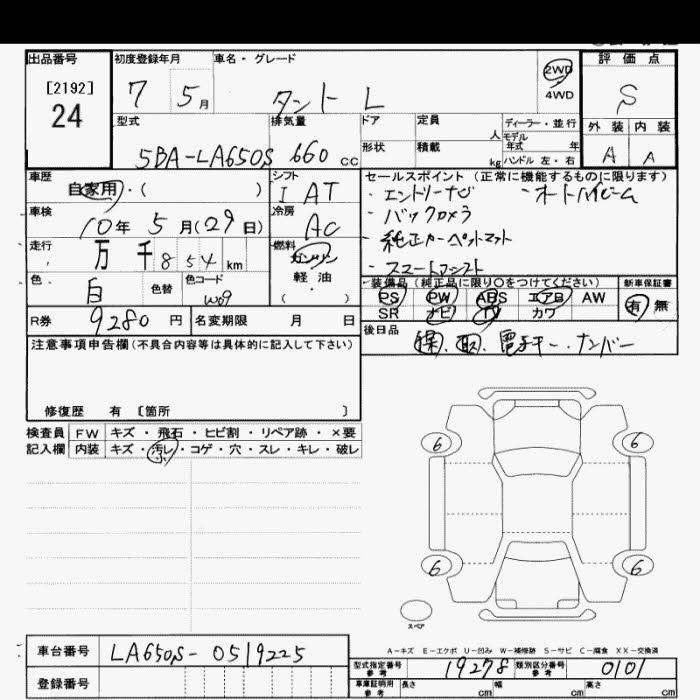 出品番号
[2192]
24
初度登録年月 車名・グレード
7 5月 タント L
2WD
4WD
評価点
S
外装 内装
A A
型式 排気量 ドア 定員 人 ディーラー・並行
モデル年式 年
形状 積載 kg ハンドル 左・右
5BA-LA650S 660 cc
車歴
自家用・( )
シフト
I AT
車検
10年 5月(29日)
冷房
AC
走行
万 千 854 km
燃料
ガソリン
軽油
( )
色
白 色替 色コード
W09
R券 9280円 名変期限 月 日
セールスポイント (正常に機能するものに限ります)
・エントリーナビ ・オートハイビーム
・バックカメラ
・純正カーペットマット
・スマートアシスト
装備品 (純正品に限り○をつけてください) 新車保証書
PS PW ABS エアB AW 有 無
SR ナビ TV カワ
後日品 保、取、電子キー・ナンバー
注意事項申告欄 (不具合内容等は具体的に記入して下さい)
修復歴 有 〔箇所 〕
検査員 FW キズ・飛石・ヒビ割・リペア跡・×要
記入欄 内装 キズ・汚レ・コゲ・穴・スレ・キレ・破レ
6 6
6 6
スペア
A-キズ E-エクボ U-凹み W-補修跡 S-サビ C-腐食 XX-交換済
車台番号 LA650S-0519225
登録番号
型式指定番号 参考 19278 類別区分番号 参考 0101
車庫証明用 参考 長さ cm 幅 cm 高さ cm